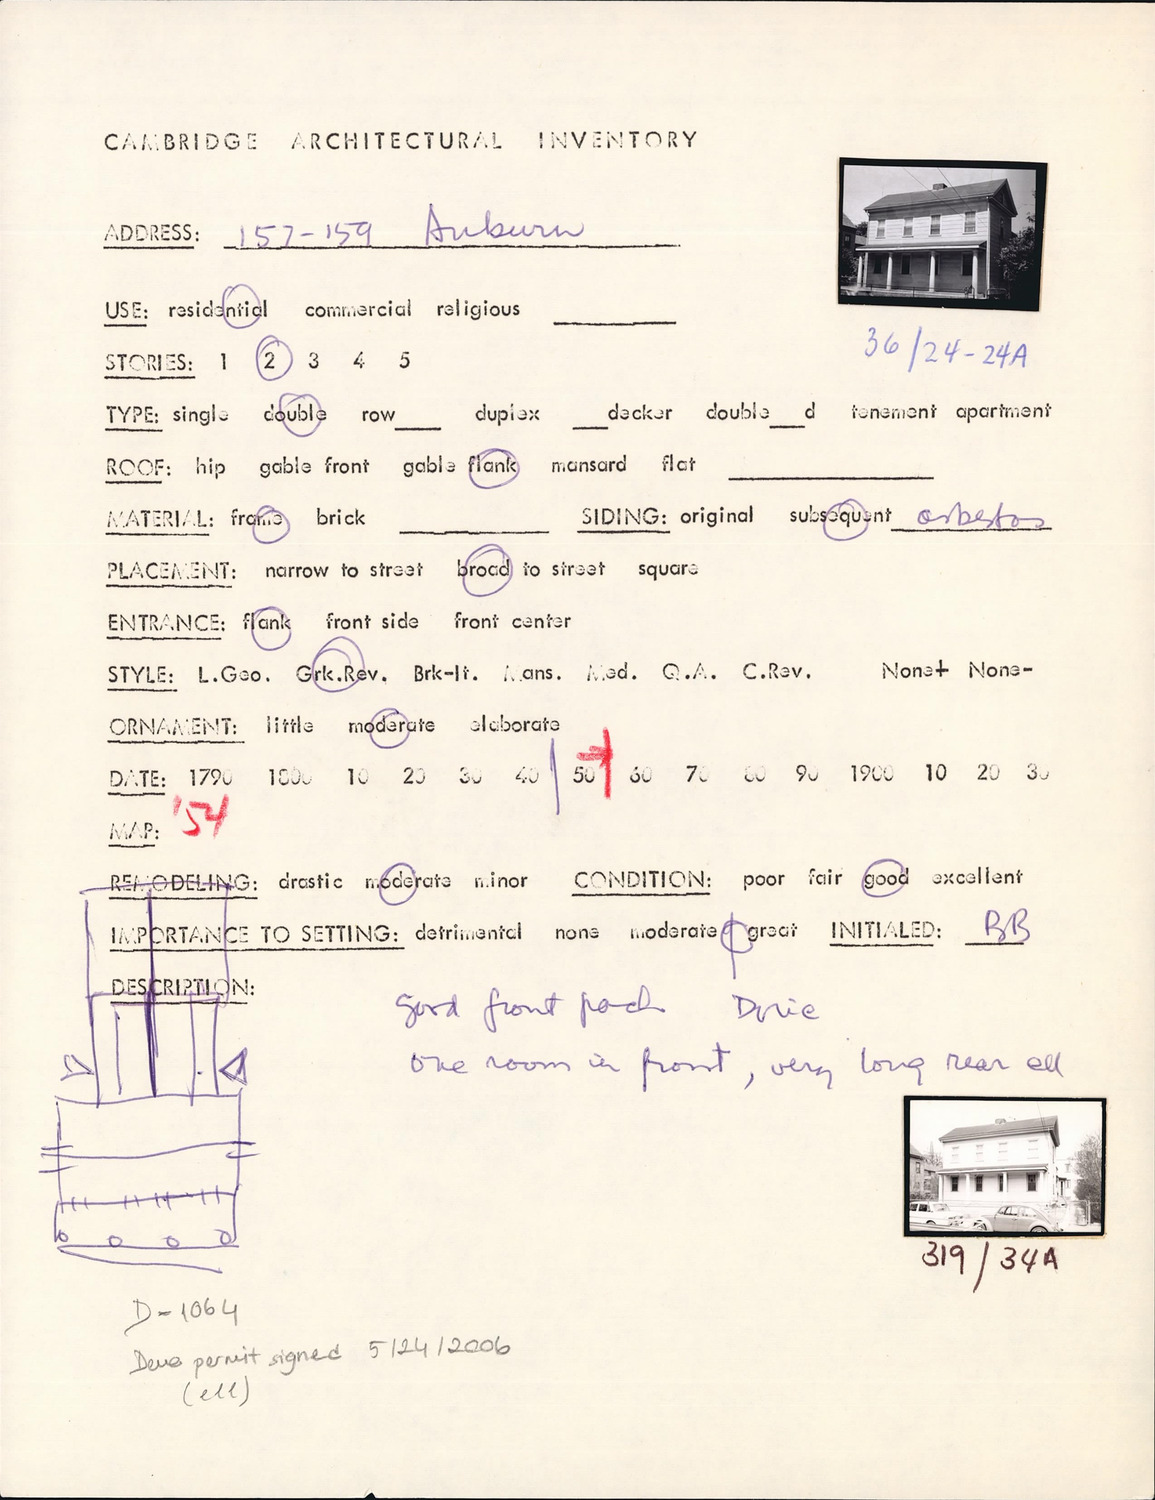 CAMBRIDGE ARCHITECTURAL INVENTORY
ADDRESS: 157-159 Auburn
USE: residential commercial religious
36/24-24A
STORIES: 1 2 3 4 5
TYPE: single double row___ duplex ___decker double___d tenement apartment
ROOF: hip gable front gable flank mansard flat
MATERIAL: frame brick SIDING: original subsequent asbestos
PLACEMENT: narrow to street broad to street square
ENTRANCE: flank front side front center
STYLE: L.Geo. Grk.Rev. Brk-It. Mans. Med. Q.A. C.Rev. None+ None-
ORNAMENT: little moderate elaborate
DATE: 1790 1800 10 20 30 40 50 60 70 80 90 1900 10 20 30
MAP: '54
REMODELING: drastic moderate minor CONDITION: poor fair good excellent
IMPORTANCE TO SETTING: detrimental none moderate great INITIALED: BB
DESCRIPTION:
good front porch Doric
one room in front, very long rear ell
319/34A
D-1064
Demo permit signed 5/24/2006
(ell)